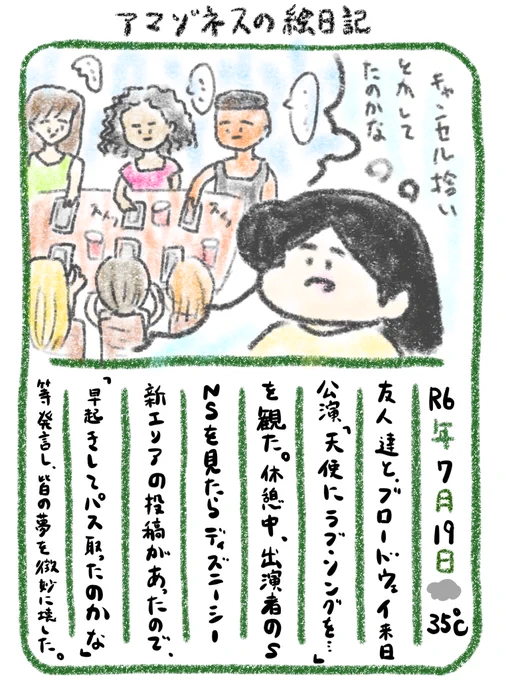 アマゾネスの絵日記
キャンセル拾い
とかして
たのかな
スッ
スッ
R6年7月19日 35℃
友人達と、ブロードウェイ来日
公演「天使にラブ・ソングを…」
を観た。休憩中、出演者のS
NSを見たらディズニーシー
新エリアの投稿があったので、
「早起きしてパス取ったのかな」
等発言し、皆の夢を微妙に壊した。